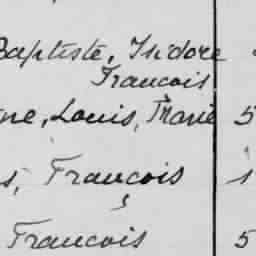 Baptiste, Isidore
Francois
ne, Louis, Marie 5
s, Francois 1
Francois 5